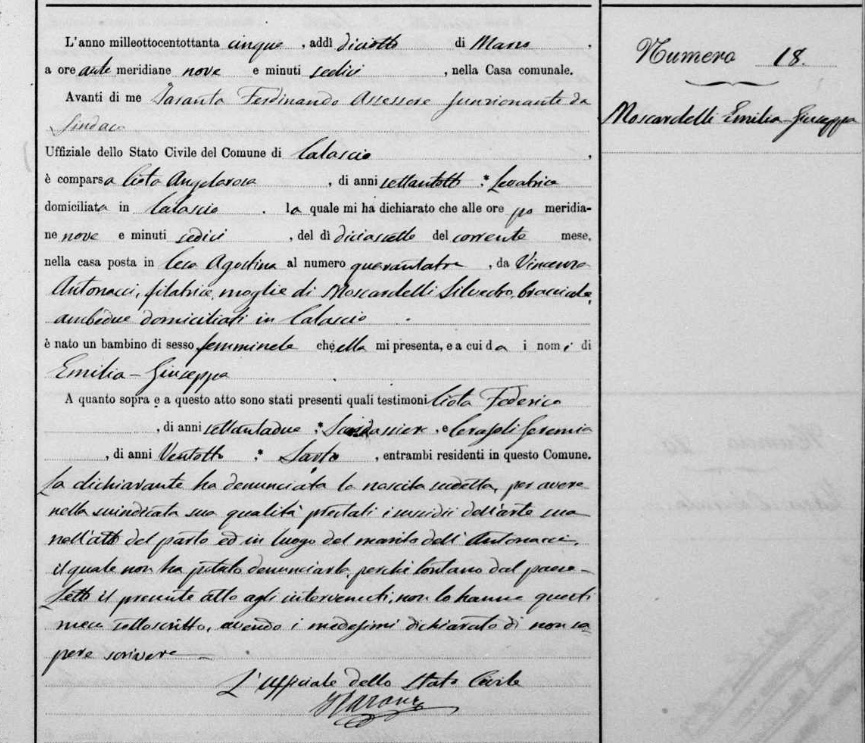 Numero 18.
Moscardelli Emilia-Giuseppa
L'anno milleottocentottanta cinque, addì diciotto di Marzo,
a ore ante meridiane nove e minuti sedici, nella Casa comunale.
Avanti di me Ferdinando Assessore funzionante da
Sindaco
Uffiziale dello Stato Civile del Comune di Calascio,
è comparsa Ciota Angelarosa, di anni settantotto, Levatrice
domiciliata in Calascio. la quale mi ha dichiarato che alle ore po meridia-
ne nove e minuti sedici, del dì diciassette del corrente mese,
nella casa posta in Agostina al numero quarantatre, da Vincenza
Antonacci, filatrice, moglie di Moscardelli Silvestro, bracciale,
ambedue domiciliati in Calascio.
è nato un bambino di sesso femminile che ella mi presenta, e a cui dà i nomi di
Emilia-Giuseppa
A quanto sopra e a questo atto sono stati presenti quali testimoni Ciota Federico
, di anni settantadue, e Geremia
, di anni Ventotto, Sarto, entrambi residenti in questo Comune.
La dichiarante ha denunciata la nascita suddetta, per avere
nella suindicata sua qualità prestati i sussidii dell'arte sua
nell'atto del parto ed in luogo del marito dell'Antonacci,
il quale non ha potuto denunciarla, perchè lontano dal paese-
Letto il presente atto agli intervenuti, non lo hanno questi
meco sottoscritto, avendo i medesimi dichiarato di non sa
pere scrivere
L'Uffiziale dello Stato Civile